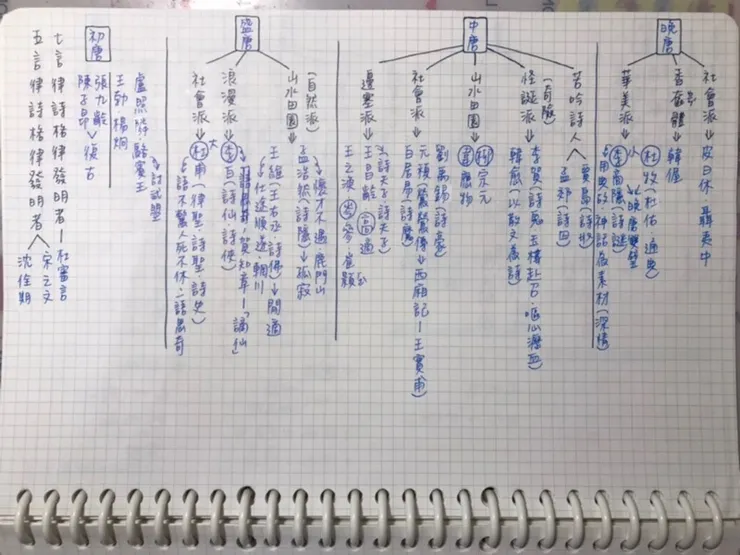 晚唐
社會派→皮日休 聶夷中
香奩體→韓偓
華美派→
小
杜牧(杜佑 通典)
李商隱(詩謎)
↳晚唐雙璧
↳用典故 神話為素材(深情)
中唐
苦吟詩人
賈島(詩奴)
孟郊(詩囚)
怪誕派(奇險)
李賀(詩鬼)玉樓赴召.嘔心瀝血
韓愈(以散文為詩)
山水田園→柳宗元
韋應物
社會派→劉禹錫(詩豪)
元稹(鶯鶯傳)→西廂記—王實甫
白居易(詩魔)
邊塞派→
王昌齡 高適
↳詩天子 詩夫子
王之渙 岑參 崔顥
盛唐
山水田園(自然派)
孟浩然(詩隱)→孤寂
↳懷才不遇 鹿門山
王維(王右丞 詩佛)→閒適
↳仕途順遂 輞川
浪漫派→李白(詩仙 詩俠)
賀知章—「謫仙」
社會派→大
杜甫(律聖.詩聖.詩史)
↳語不驚人死不休.一語為奇
初唐
盧照鄰.駱賓王
↳討武曌
王勃 楊炯
張九齡
陳子昂→復古
七言律詩格律發明者—杜審言
五言律詩格律發明者
宋之問
沈佺期